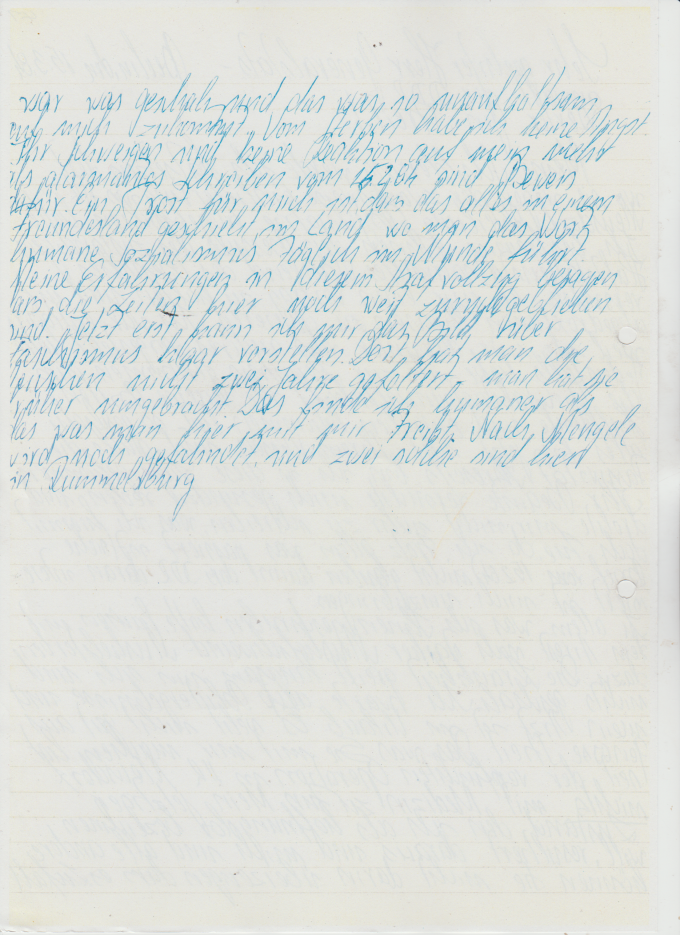 war was geschah und das was so unaufhaltsam
auf mich zukommt. Vom Sterben habe ich keine Angst.
Ihr Schweigen und keine Reaktion auf mein mehr
als alarmantes Schreiben vom 15.2.84 sind Beweis
dafür. Ein Trost für mich ist das das alles in einem
Freundesland geschieht im Land wo man das Wort
humane Sozialismus Täglich im Munde führt.
Meine Erfahrungen in diesem Strafvollzug besagen
das die Zeiten hier noch weit zurückgeblieben
sind. Jetzt erst kann ich mir das Bild über
Faschismus klaar vorstellen. Dort hat man die
Menschen nicht zwei Jahre gefoltert, man hat sie
früher umgebracht. Das finde ich humaner als
das was man hier mit mir Treibt. Nach Mengele
wird noch gefahndet. und zwei solche sind hier
in Rummelsburg